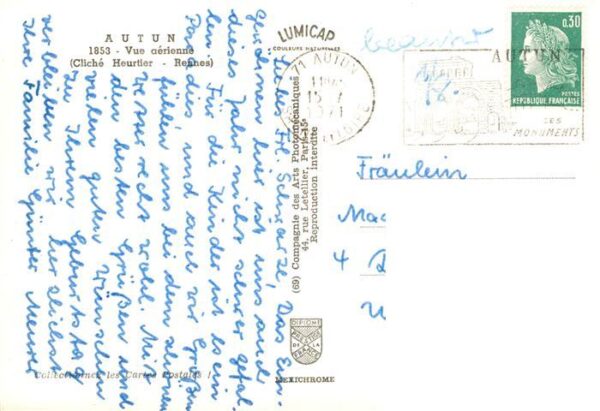 AUTUN
1853 - Vue aérienne
(Cliché Heurtier - Rennes)
LUMICAP
COULEURS NATURELLES
71 AUTUN
15
1971
beantw
AUTUN
SES
MONUMENTS
0,30
POSTES
REPUBLIQUE FRANÇAISE
Liebes Frl. Schwarze, Das Ein-
gewöhnen hier ist uns auch
dieses Jahr nicht schwer gefal-
len. Für die Kinder ist es ein
Paradies und auch wir Großen
fühlen uns bei dem schönen
Wetter recht wohl. Mit
den besten Grüßen und
vielen guten Wünschen
zu Ihrem Geburtstag
verbleiben wir herzlichst
Ihre Familie Günter Meurer
(69) Compagnie des Arts Photomécaniques
44, rue Letellier, Paris-15e
Reproduction interdite
Fräulein
Ma
4
DIPLOME
PRESTIGE
DE LA
FRANCE
MEXICHROME
Collectionnez les Cartes Postales !